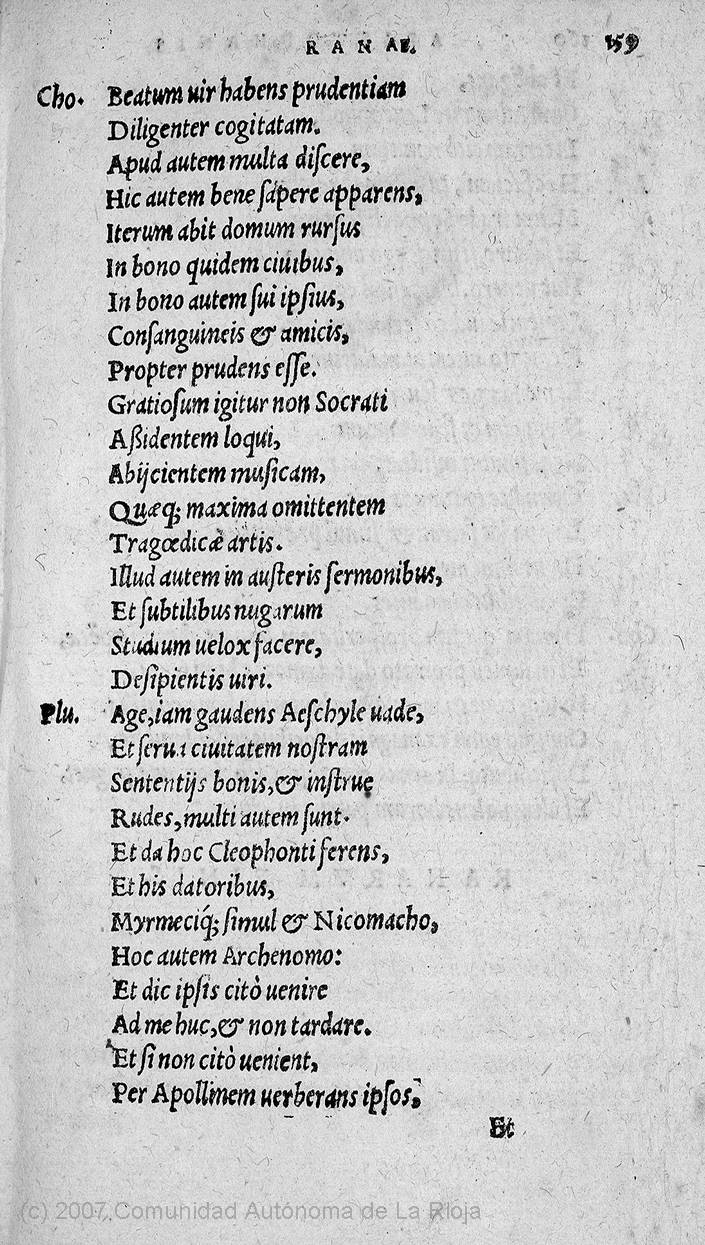 RANAE. 159
Cho. Beatum uir habens prudentiam
Diligenter cogitatam.
Apud autem multa diſcere,
Hic autem bene ſapere apparens,
Iterum abit domum rurſus
In bono quidem ciuibus,
In bono autem ſui ipſius,
Conſanguineis & amicis,
Propter prudens eſſe.
Gratioſum igitur non Socrati
Aßidentem loqui,
Abijcientem muſicam,
Quæq; maxima omittentem
Tragœdicæ artis.
Illud autem in auſteris ſermonibus,
Et ſubtilibus nugarum
Studium uelox facere,
Deſipientis uiri.
Plu. Age, iam gaudens Aeſchyle uade,
Et ſerua ciuitatem noſtram
Sententijs bonis, & inſtrue
Rudes, multi autem ſunt.
Et da hoc Cleophonti ferens,
Et his datoribus,
Myrmeciq́; ſimul & Nicomacho,
Hoc autem Archenomo:
Et dic ipſis citò uenire
Ad me huc, & non tardare.
Et ſi non citò uenient,
Per Apollinem uerberans ipſos,
Et
(c) 2007 Comunidad Autónoma de La Rioja